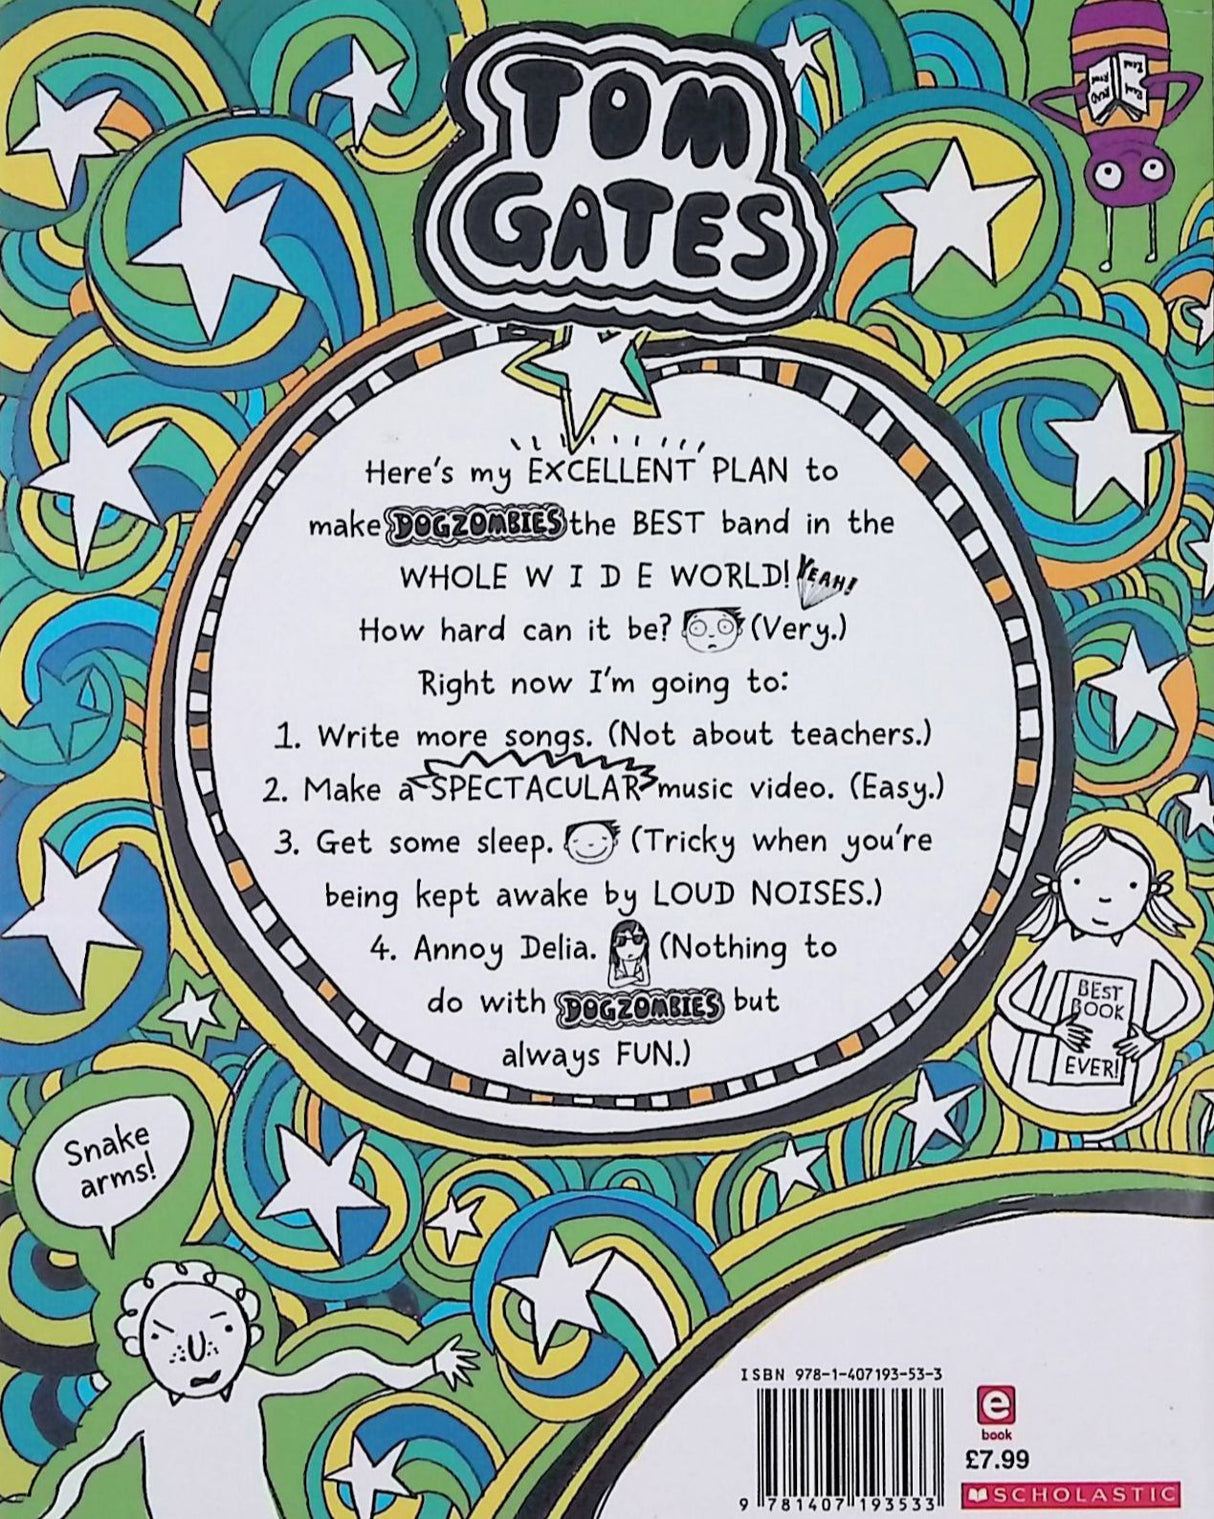 TOM
GATES
READ
Read
Read
Read
Here's my EXCELLENT PLAN to
make DOGZOMBIES the BEST band in the
WHOLE W I D E WORLD! YEAH!
How hard can it be? (Very.)
Right now I'm going to:
1. Write more songs. (Not about teachers.)
2. Make a SPECTACULAR music video. (Easy.)
3. Get some sleep. (Tricky when you're
being kept awake by LOUD NOISES.)
4. Annoy Delia. (Nothing to
do with DOGZOMBIES but
always FUN.)
BEST
BOOK
EVER!
Snake
arms!
ISBN 978-1-407193-53-3
9 781407 193533
e
book
£7.99
SCHOLASTIC